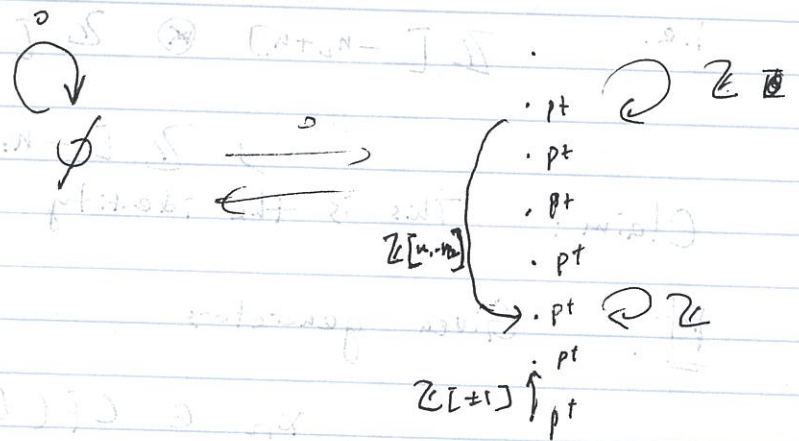 0
. pt ℤ
∅ 0 . pt
. pt
ℤ[n₁-n₂] . pt
. pt ℤ
. pt
ℤ[±1] pt